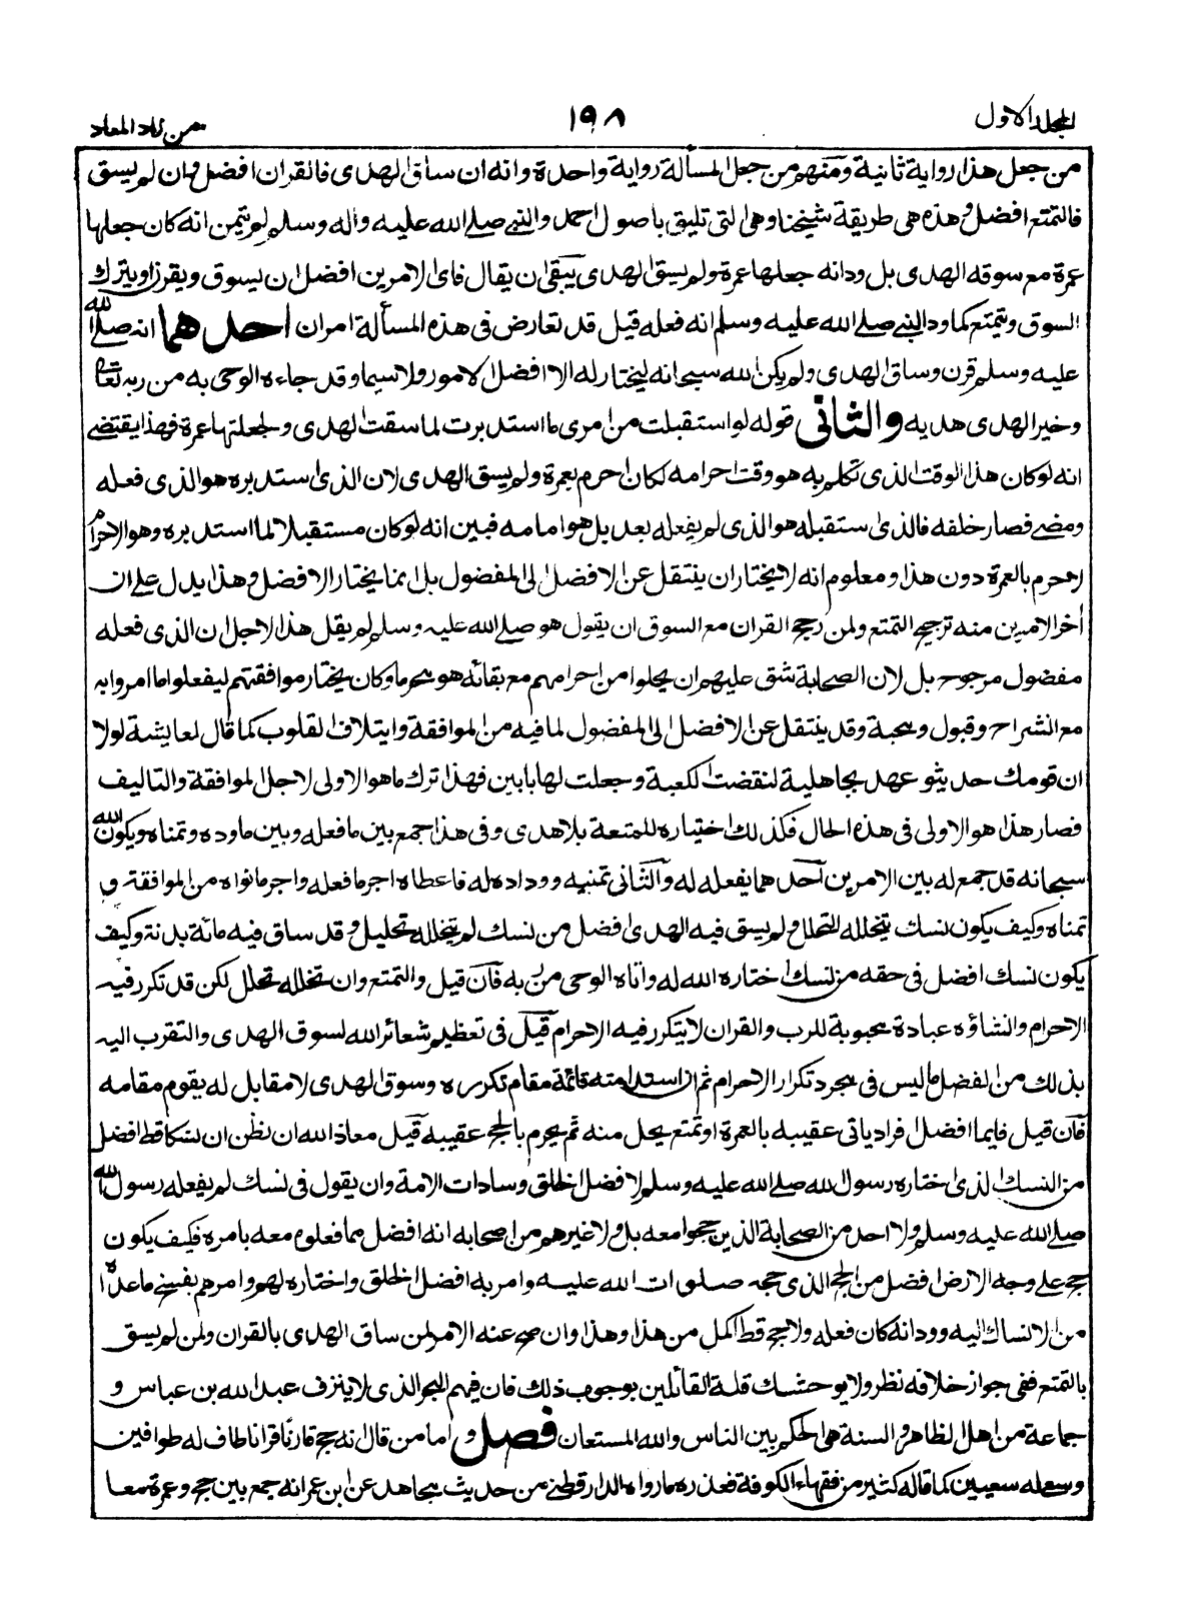 المجلد الاول
١٩٨
من زاد المعاد
من جعل هذا رواية ثانية ومنهم من جعل المسألة رواية واحدة وانه ان ساق الهدى فالقران افضل وان لم يسق
فالتمتع افضل وهذه هى طريقة شيخنا وهى التى تليق باصول احمد والنبى صلى الله عليه واله وسلم لم يتمن انه كان جعلها
عمرة مع سوقه الهدى بل ود انه جعلها عمرة ولم يسق الهدى يبقى ان يقال فاى الامرين افضل ان يسوق ويقرن او يترك
السوق ويتمتع كما ود النبى صلى الله عليه وسلم انه فعله قيل قد تعارض فى هذه المسألة امران احدهما انه صلى الله
عليه وسلم قرن وساق الهدى ولم يكن الله سبحانه ليختار له الا افضل الامور ولا سيما وقد جاءه الوحى به من ربه تعالى
وخير الهدى هديه والثانى قوله لو استقبلت من امرى ما استدبرت لما سقت الهدى ولجعلتها عمرة فهذا يقتضى
انه لو كان هذا الوقت الذى تكلم به هو وقت احرامه لكان احرم بعمرة ولم يسق الهدى لان الذى استدبره هو الذى فعله
ومضى فصار خلفه فالذى استقبله هو الذى لم يفعله بعد بل هو امامه فبين انه لو كان مستقبلا لما استدبره وهو الاحرام
احرم بالعمرة دون هذا ومعلوم انه لا يختار ان ينتقل عن الافضل الى المفضول بل انما يختار الافضل وهذا يدل على ان
أخر الامرين منه ترجيح التمتع ولمن رجح القران مع السوق ان يقول هو صلى الله عليه وسلم لم يقل هذا الاجل ان الذى فعله
مفضول مرجوح بل لان الصحابة شق عليهم ان يحلوا من احرامهم مع بقائه هو محرما وكان يختار موافقتهم ليفعلوا ما امروا به
مع انشراح وقبول ومحبة وقد ينتقل عن الافضل الى المفضول لما فيه من الموافقة وايتلاف القلوب كما قال لعايشة لولا
ان قومك حديثو عهد بجاهلية لنقضت الكعبة وجعلت لها بابين فهذا ترك ما هو الاولى لاجل الموافقة والتاليف
فصار هذا هو الاولى فى هذه الحال فكذلك اختياره للمتعة بلا هدى وفى هذا جمع بين ما فعله وبين ما وده وتمناه ويكون الله
سبحانه قد جمع له بين الامرين احدهما بفعله له والثانى تمنيه ووداده له فاعطاه اجر ما فعله واجر ما نواه من الموافقة و
تمناه وكيف يكون نسك يتخلله التحلل ولم يسق فيه الهدى افضل من نسك لم يتخلله تحليل وقد ساق فيه مائة بدنة وكيف
يكون نسك افضل فى حقه من نسك اختاره الله له واتاه الوحى من ربه فان قيل والتمتع وان تخلله تحلل لكن قد تكرر فيه
الاحرام وانشاؤه عبادة محبوبة للرب والقران لا يتكرر فيه الاحرام قيل فى تعظيم شعائر الله لسوق الهدى والتقرب اليه
بذلك من الفضل ما ليس فى مجرد تكرار الاحرام ثم ان استدامته قائمة مقام تكرره وسوق الهدى لا مقابل له يقوم مقامه
فان قيل فايما افضل افراد ياتى عقيبه بالعمرة او تمتع يحل منه ثم يحرم بالحج عقيبه قيل معاذ الله ان نظن ان نسكا قط افضل
من النسك الذى اختاره رسول الله صلى الله عليه وسلم لافضل الخلق وسادات الامة وان يقول فى نسك لم يفعله رسول الله
صلى الله عليه وسلم ولا احد من الصحابة الذين حجوا معه بل ولا غيرهم من اصحابه انه افضل مما فعلوه معه بامره فكيف يكون
حج على وجه الارض افضل من الحج الذى حجه صلوات الله عليه وامر به افضل الخلق واختاره لهم وامرهم بفسخ ما عداه
من الانساك اليه وود انه كان فعله ولا حج قط اكمل من هذا وهذا وان صح عنه الامر لمن ساق الهدى بالقران ولمن لم يسق
بالتمتع ففى جواز خلافه نظر ولا يوحشك قلة القائلين بوجوب ذلك فان فيهم البحر الذى لا ينزف عبد الله بن عباس و
جماعة من اهل الظاهر والسنة هى الحكم بين الناس والله المستعان فصل واما من قال انه حج قارنا قرانا طاف له طوافين
وسعى له سعيين كما قاله كثير من فقهاء الكوفة فعذره ما رواه الدارقطنى من حديث مجاهد عن ابن عمر انه جمع بين حج وعمرة معا